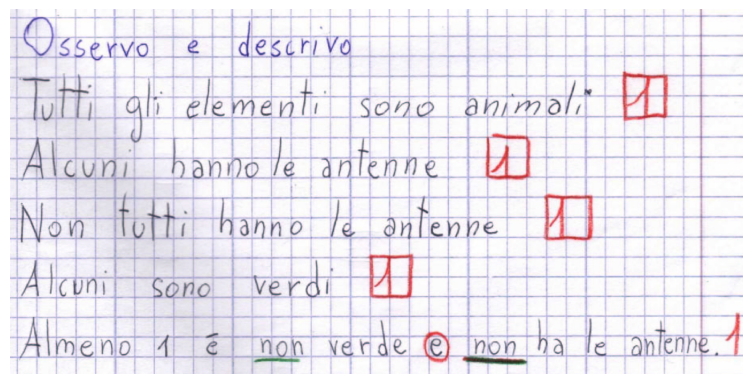 Osservo e descrivo
Tutti gli elementi sono animali 1
Alcuni hanno le antenne 1
Non tutti hanno le antenne 1
Alcuni sono verdi 1
Almeno 1 è non verde e non ha le antenne. 1